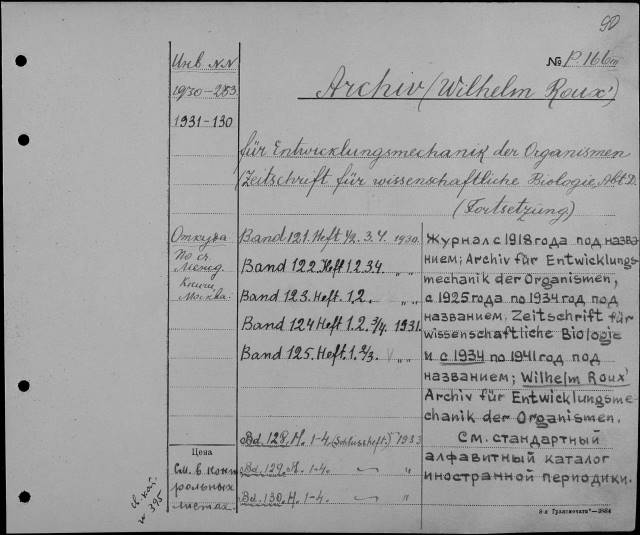 90
Инв NN
№ P.166m
Archiv (Wilhelm Roux')
1930-283
1931-130
für Entwicklungsmechanik der Organismen
(Zeitschrift für wissenschaftliche Biologie, Abt. D.
(Fortsetzung)
Откуда
По сч.
Межд.
Книги,
Москва.
Band 121. Heft 1/2. 3. 4. 1930.
Band 122. Heft 1. 2. 3. 4. „ „
Band 123. Heft. 1. 2. „ „
Band 124 Heft 1. 2. 3/4. 1931.
Band 125. Heft. 1. 2/3. „ „
Bd. 128. H. 1-4. (Schlussheft.) 1933
Bd. 129. H. 1-4. — "
Bd. 130. H. 1-4. — "
Журнал с 1918 года под назва-
нием; Archiv für Entwicklungs-
mechanik der Organismen,
с 1925 года по 1934 год под
названием: Zeitschrift für
wissenschaftliche Biologie
и с 1934 по 1941 год под
названием; Wilhelm Roux'
Archiv für Entwicklungsme-
chanik der Organismen.
См. стандартный
алфавитный каталог
иностранной периодики.
Цена
См. в. конт
рольных
листах.
395